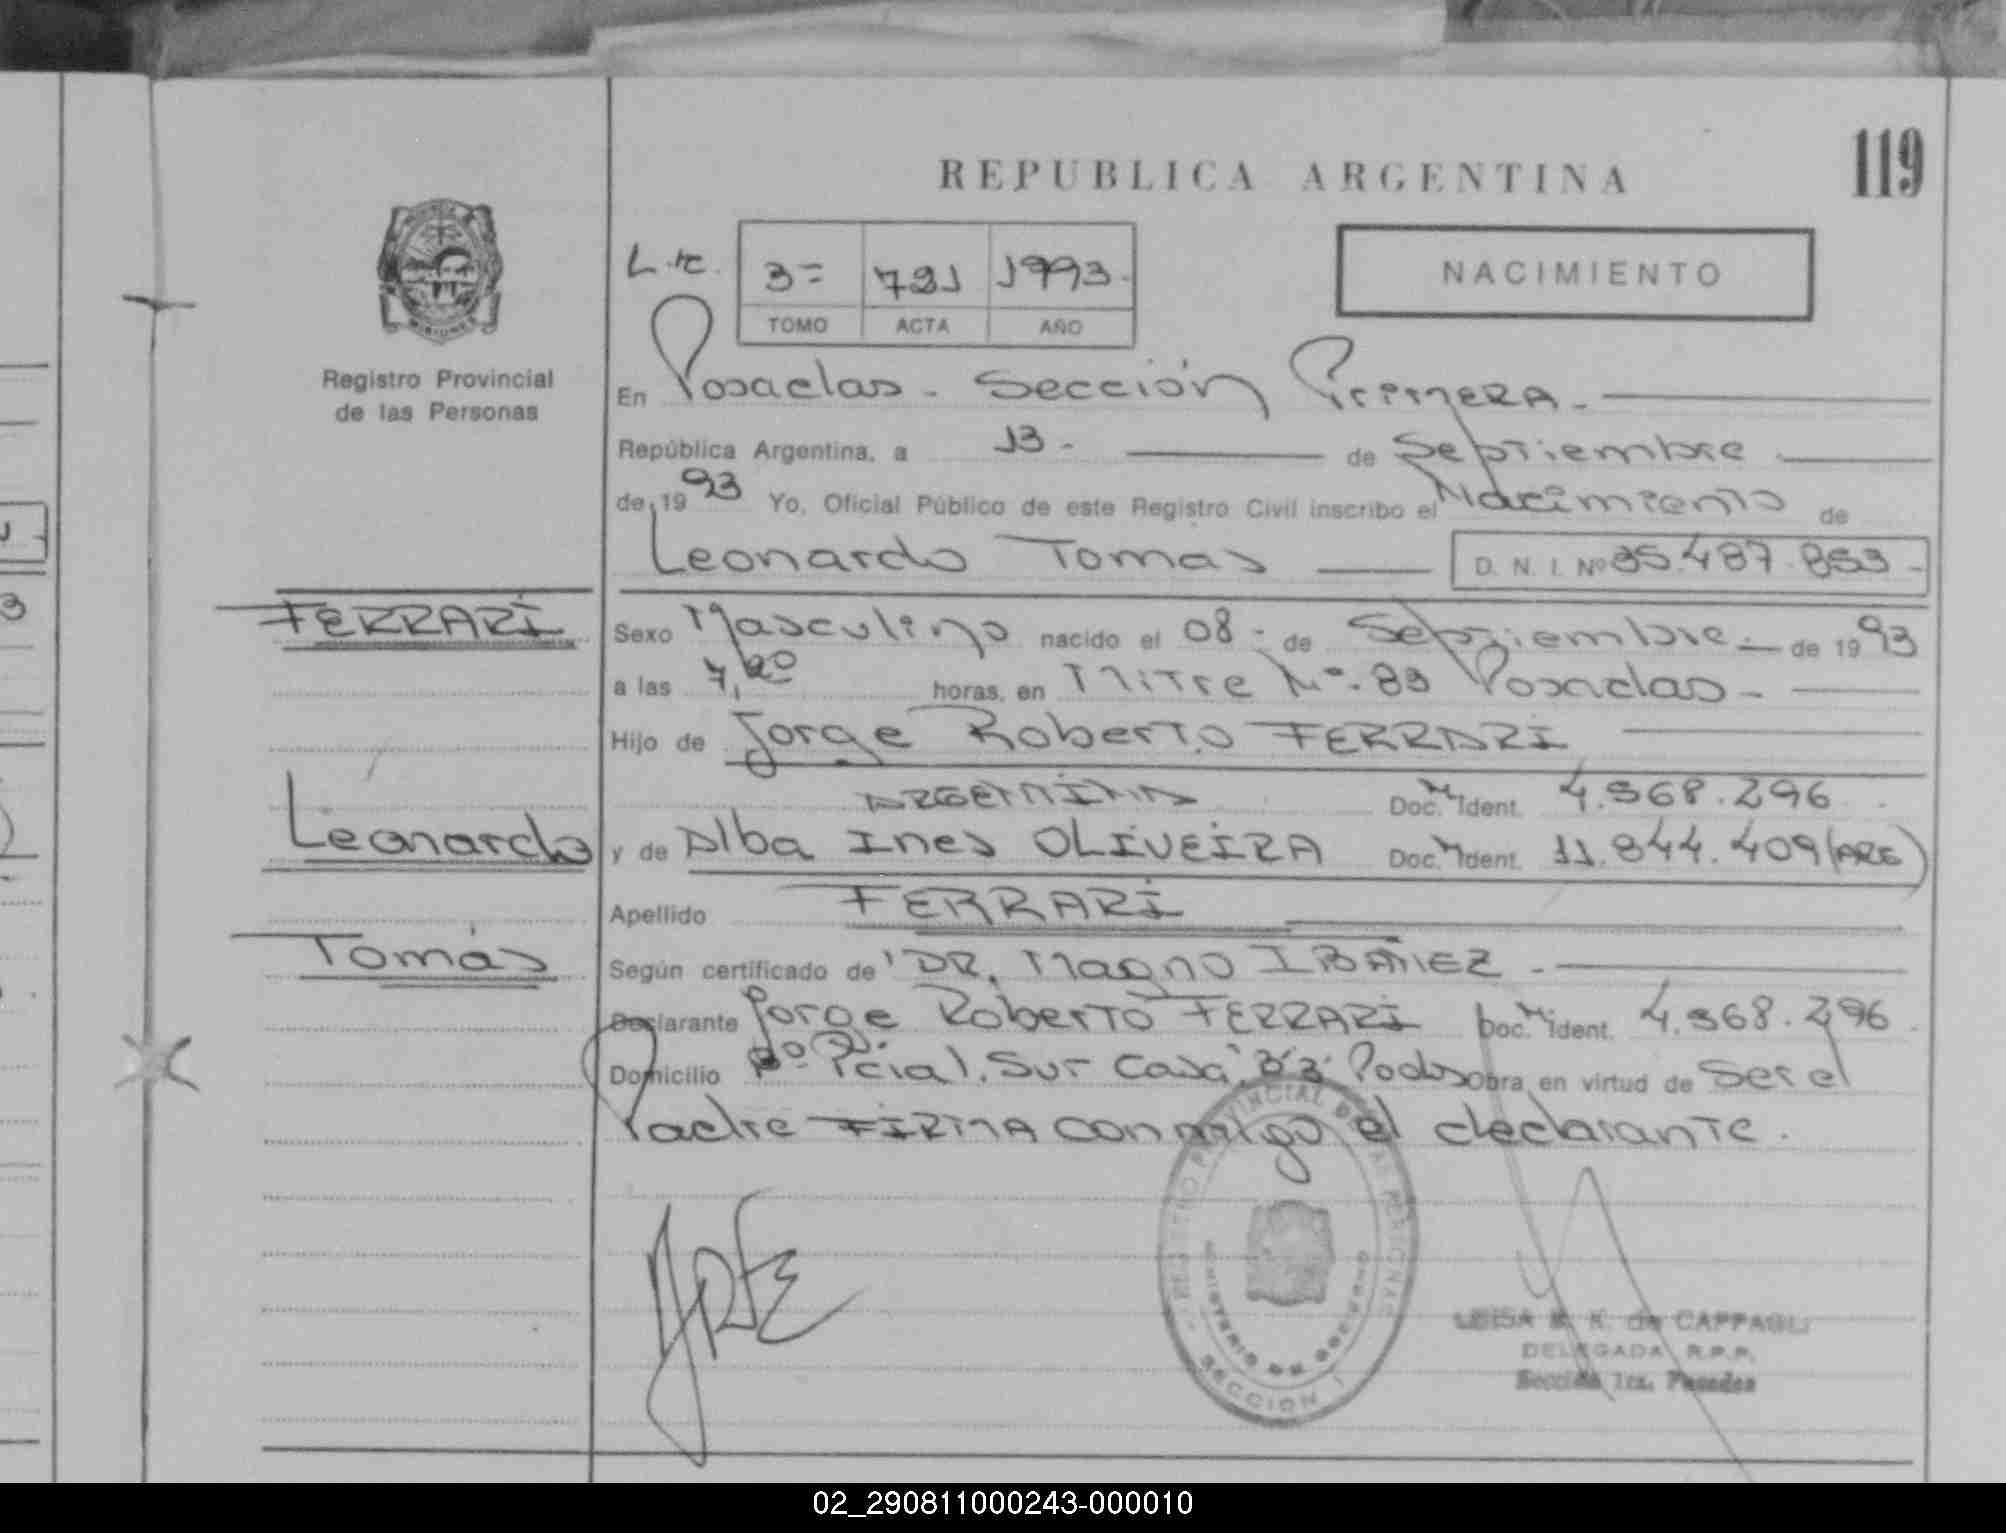 119
REPUBLICA ARGENTINA
NACIMIENTO
3=
721
1993.
TOMO
ACTA
AÑO
MISIONES
Registro Provincial
de las Personas
En Posadas - Sección Primera.
República Argentina, a 13 - de Septiembre
de 1993 Yo, Oficial Público de este Registro Civil inscribo el Nacimiento de
Leonardo Tomas D. N. I. Nº 35.487.853-
FERRARI
Sexo Masculino nacido el 08 - de Septiembre - de 1993
a las 7,20 horas, en Mitre Nº. 83 Posadas -
Hijo de Jorge Roberto FERRARI
ARGENTINA Doc. M Ident. 4.368.296
Leonardo
y de Alba Ines OLIVEIRA Doc. M Ident. 11.844.409 (ARG)
Apellido FERRARI
Tomás
Según certificado de DR. Magno IBAÑEZ -
Declarante Jorge Roberto FERRARI Doc. M Ident. 4.368.296
Domicilio Bº Pcial. Sur Casa 33 Podas Obra en virtud de Ser el
Padre FIRMA conmigo el declarante.
REGISTRO PROVINCIAL DE LAS PERSONAS
MINISTERIO DE GOBIERNO
SECCION 1
K. de CAPPAGLI
DELEGADA R.P.P.
Sección 1ra. Posadas
02_290811000243-000010